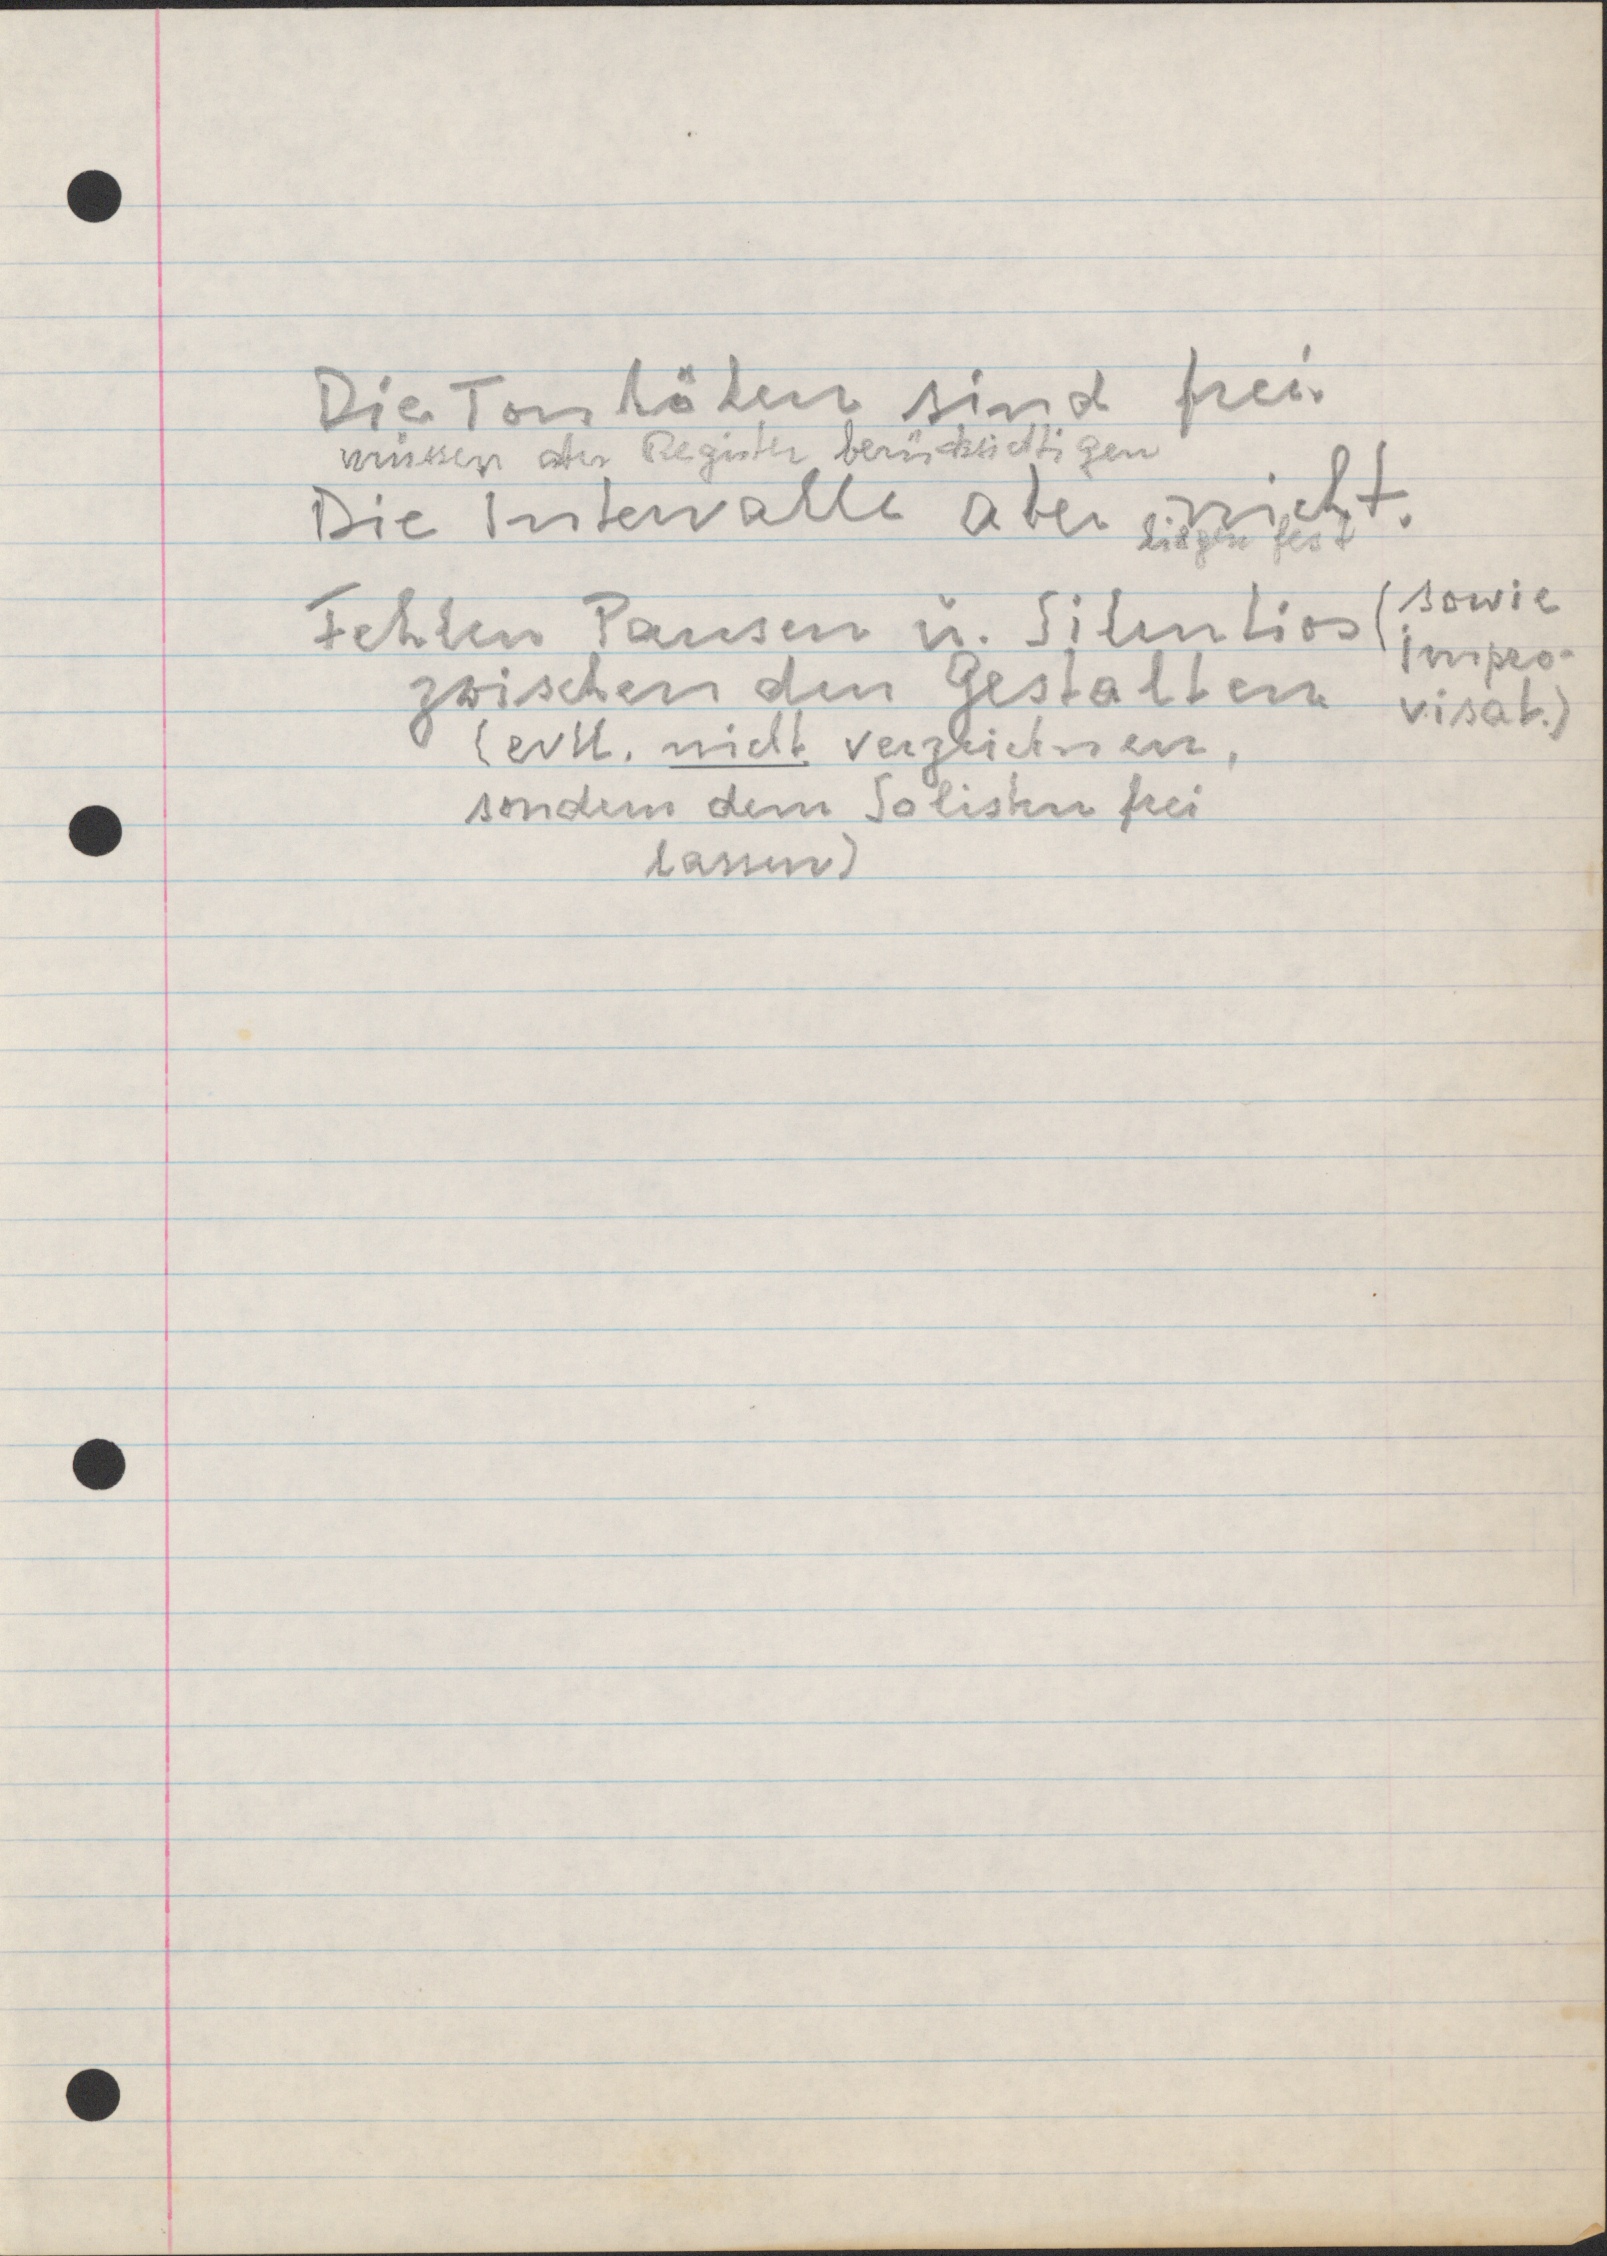 Die Tonhöhen sind frei.
müssen aber Register berücksichtigen
Die Intervalle aber nicht.
liegen fest
Fehlen Pausen u. Silentios (sowie
Impro-
zwischen den Gestalten
visat.)
(evtl. nicht verzeichnen,
sondern dem Solisten frei
lassen)